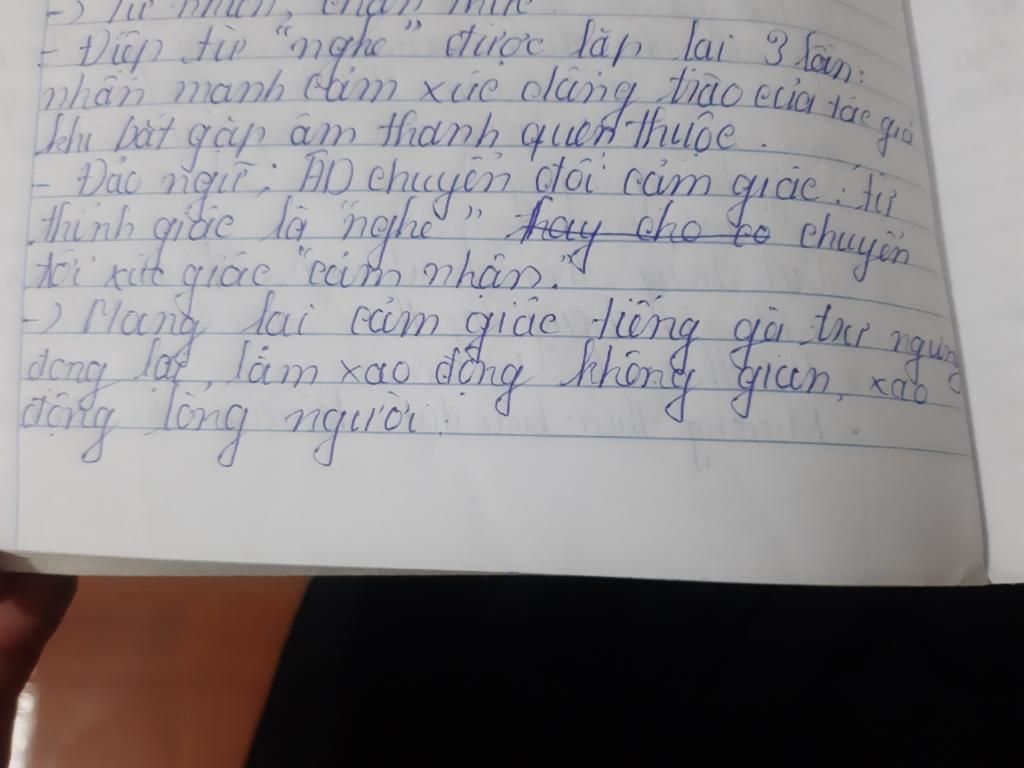 -> Tự nhiên, chân thực
- Điệp từ "nghe" được lặp lại 3 lần:
nhấn mạnh cảm xúc dâng trào của tác giả
khi bắt gặp âm thanh quen thuộc.
- Đảo ngữ; ÂD chuyển đổi cảm giác: từ
thính giác là "nghe" thay cho co chuyển
tới xúc giác "cảm nhận".
-> Mang lại cảm giác tiếng gà trư ngưng
đọng lại, làm xao động không gian, xao
động lòng người.